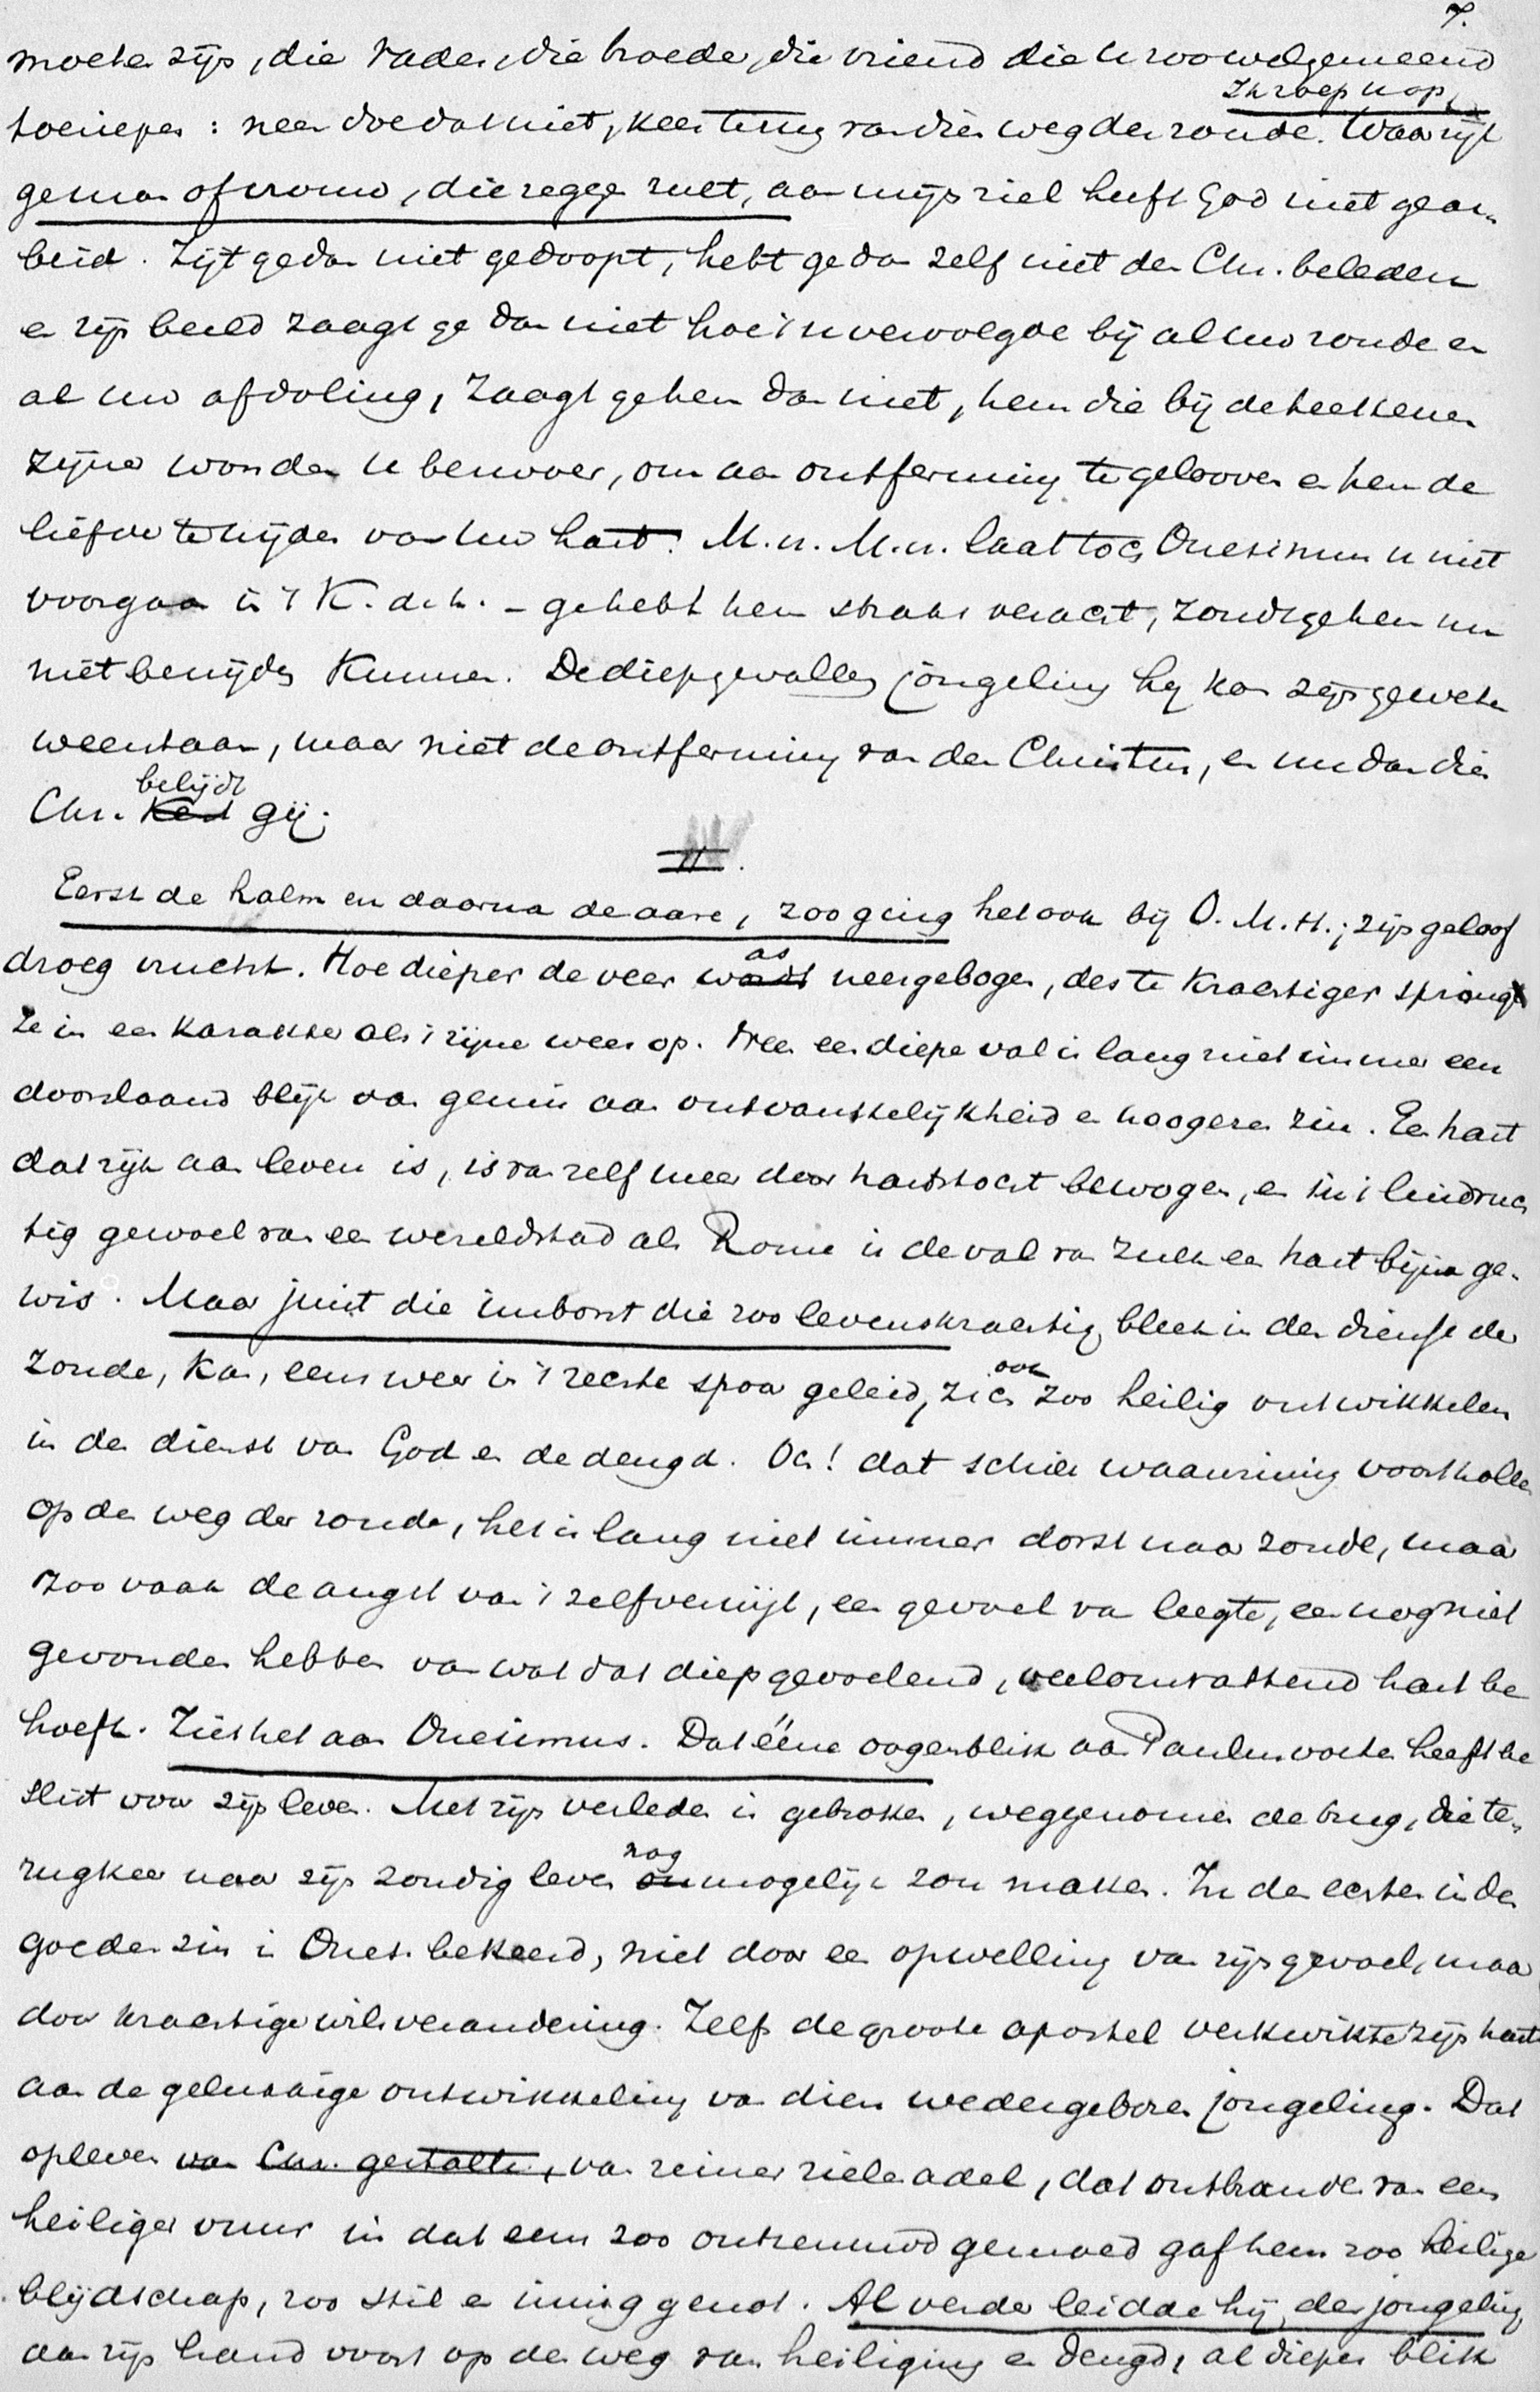 7.
moeten zijn, die vader, die broeder, die vriend die u zoo welgemeend
Ik roep u op,
toeriepen: neen doe dat niet, keer terug van dien weg der zonde. Waar zijt
ge man of vrouw, die zeggen zult, aan mijn ziel heeft God niet gear-
beid. Zijt ge dan niet gedoopt, hebt ge dan zelf niet den Chr. beleden
en zijn beeld zaagt ge dan niet hoe 't u vervolgde bij al uw zonde en
al uw afdoling, zaagt ge hem dan niet, hem die bij de teekenen
zijner wonden u bezwoer, om aan ontferming te gelooven en hem de
liefde te wijden van uw hart. M.u. M.u. laat toch Onesimus u niet
voorgaan in 't K. d. h. - ge hebt hem straks veracht, zoudt ge hem nu
niet benijden kunnen. De diepgevallen jongeling hij kon zijn geweten
weerstaan, maar niet de ontferming van den Christus, en nu dan dien
belijdt
Chr. kent gij.
II.
Eerst de halm en daarna de aare, zoo ging het ook bij O. M. H.; zijn geloof
droeg vrucht. Hoe dieper de veer wordt neergebogen, des te krachtiger springt
as
ze in een karakter als 't zijne weer op. Neen een diepe val is lang niet immer een
doorslaand blijk van gemis aan ontvankelijkheid en hoogeren zin. Een hart
dat rijk aan leven is, is van zelf meer door hartstocht bewogen, en in 't luidruch
tig gewoel van een wereldstad als Rome is de val van zulk een hart bijna ge-
wis. Maar juist die inborst die zoo levenskrachtig bleek in den dienst der
zonde, kan, eens weer in 't rechte spoor geleid, zich zoo heilig ontwikkelen
ook
in den dienst van God en de deugd. Och! dat schier waanzinnig voorthollen
op den weg der zonde, het is lang niet immer dorst naar zonde, maar
zoo vaak de angst van 't zelfverwijt, een gevoel van leegte, een nog niet
gevonden hebben van wat dat diepgevoelend, veelomvattend hart be
hoeft. Ziet het aan Onesimus. Dat ééne oogenblik aan Paulus voeten heeft be
slist voor zijn leven. Met zijn verleden is gebroken, weggenomen de brug, die te-
rugkeer naar zijn zondig leven onmogelijk zou maken. In den echten in den
nog
goeden zin is Ones. bekeerd, niet door een opwelling van zijn gevoel, maar
door krachtige wilsverandering. Zelfs de groote apostel verkwikte zijn hart
aan de gelukkige ontwikkeling van dien wedergeboren jongeling. Dat
opleven van Chr. gestalte, van reiner zieleadel, dat ontbranden van een
heiliger vuur in dat eens zoo ontzenuwd gemoed gaf hem zoo heilige
blijdschap, zoo stil en innig genot. Al verder leidde hij den jongeling
aan zijn hand voort op den weg van heiliging en deugd, al dieper blik